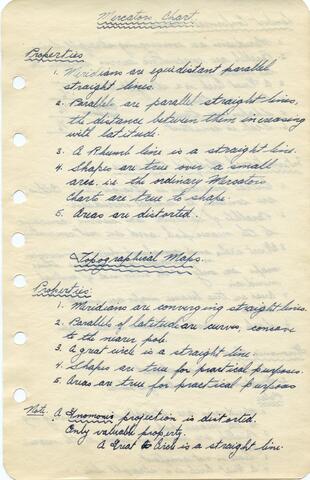 Mercators Chart.
Properties
1. Meridians are equidistant parallel
straight lines.
2. Parallels are parallel straight lines,
th distance between them increasing
with latitude.
3. A Rhumb line is a straight line.
4 Shapes are true over a small
area. i.e. the ordinary Mercators
Charts are true to shape.
5. Areas are distorted.
Topographical Maps.
Properties:
1. Meridians are converging straight lines.
2. Parallels of latitude are curves, concave
to the nearer pole.
3. A great circle is a straight line.
4 Shapes are true for practical purposes.
5. Areas are true for practical purposes
Note: A Gnomonic projection is distorted.
Only valuable property.
A Great Circle is a straight line.